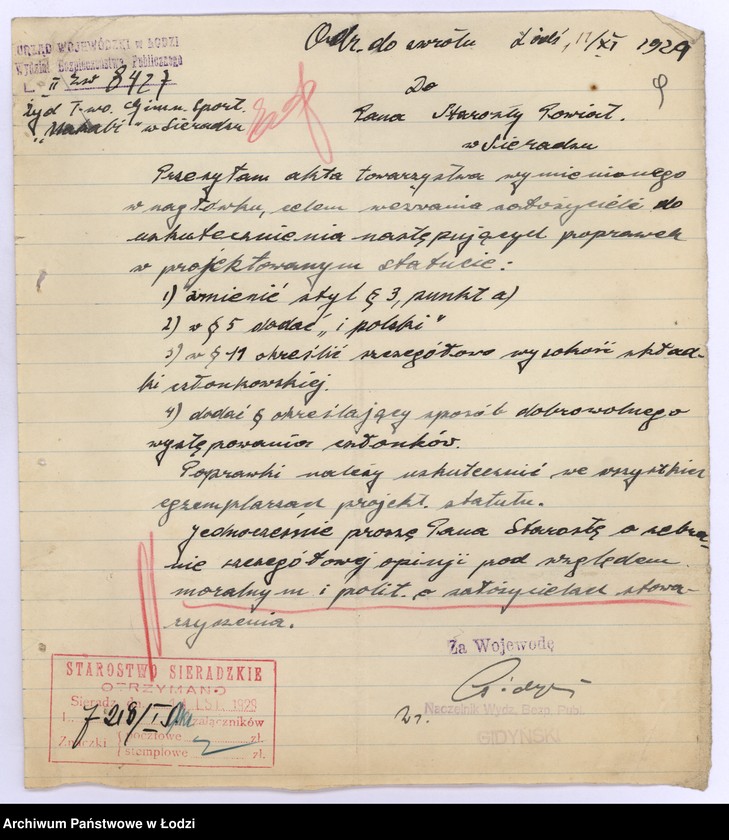 URZĄD WOJEWÓDZKI w ŁODZI
Wydział Bezpieczeństwa Publicznego
L. II zw 8427
Odr. do zwrotu Łódź, 12/XI 1929
Żyd T-wo. Gimn. Sport.
„Makabi" w Sieradzu
Do
Pana Starosty Powiat.
w Sieradzu
Przesyłam akta towarzystwa wymienionego
w nagłówku, celem wezwania założycieli do
uskutecznienia następujących poprawek
w projektowanym statucie:
1) zmienić styl § 3, punkt a)
2) w § 5 dodać „i polski"
3) w § 11 określić szczegółowo wysokość skład-
ki członkowskiej.
4) dodać § określający sposób dobrowolnego
występowania członków.
Poprawki należy uskutecznić we wszystkich
egzemplarzach projekt. statutu.
Jednocześnie proszę Pana Starostę o zebra-
nie szczegółowej opinji pod względem
moralnym i polit. o założycielach stowa-
rzyszenia.
Za Wojewodę
Naczelnik Wydz. Bezp. Publ.
GIDYŃSKI
STAROSTWO SIERADZKIE
OTRZYMANO
Sieradz, dn. LIST. 1929
L. załączników
Znaczki pocztowe zł.
stemplowe zł.
Archiwum Państwowe w Łodzi